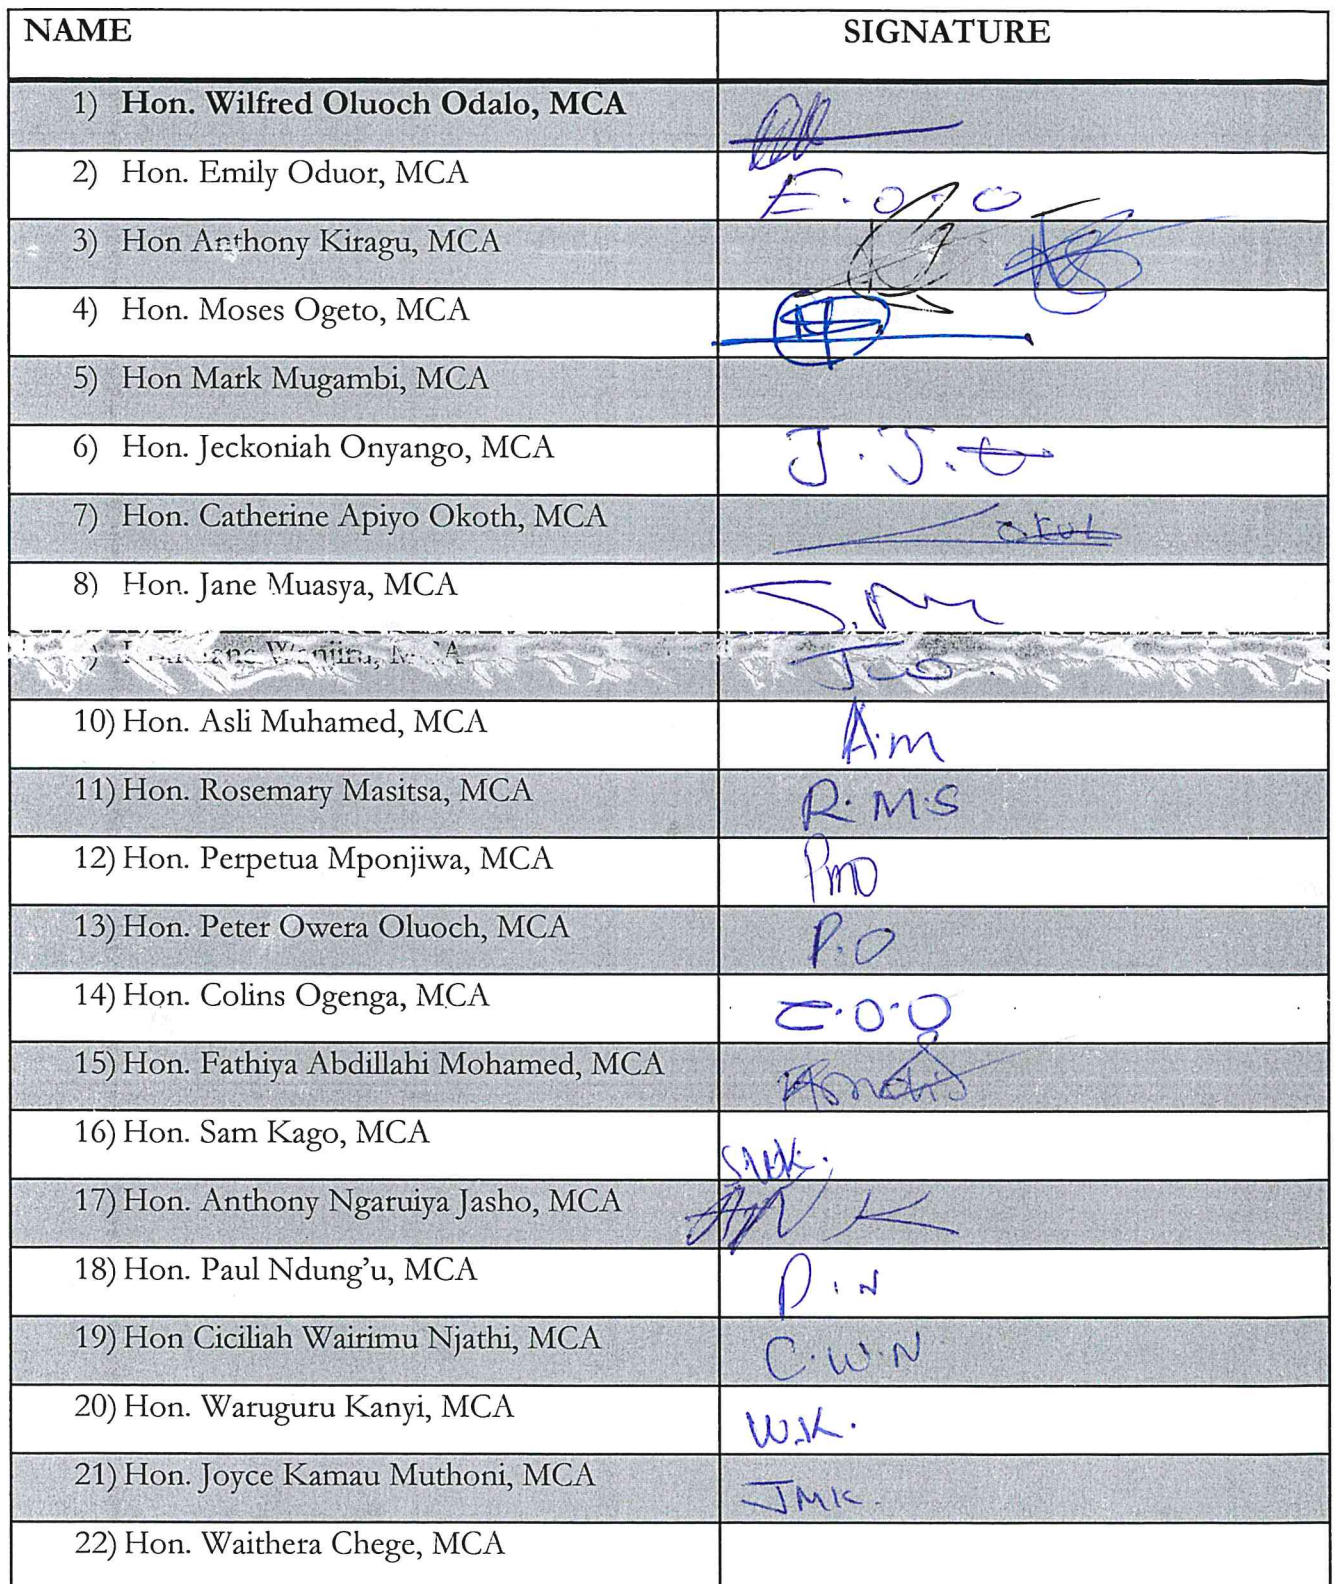 NAME SIGNATURE
1) Hon. Wilfred Oluoch Odalo, MCA
2) Hon. Emily Oduor, MCA E.O.O
3) Hon Anthony Kiragu, MCA
4) Hon. Moses Ogeto, MCA
5) Hon Mark Mugambi, MCA
6) Hon. Jeckoniah Onyango, MCA J.J.O
7) Hon. Catherine Apiyo Okoth, MCA
8) Hon. Jane Muasya, MCA
Wanjiru, MCA
10) Hon. Asli Muhamed, MCA A.m
11) Hon. Rosemary Masitsa, MCA R.M.S
12) Hon. Perpetua Mponjiwa, MCA PmO
13) Hon. Peter Owera Oluoch, MCA P.O
14) Hon. Colins Ogenga, MCA C.O.O
15) Hon. Fathiya Abdillahi Mohamed, MCA
16) Hon. Sam Kago, MCA
17) Hon. Anthony Ngaruiya Jasho, MCA
18) Hon. Paul Ndung'u, MCA P.N
19) Hon Ciciliah Wairimu Njathi, MCA C.W.N
20) Hon. Waruguru Kanyi, MCA W.K.
21) Hon. Joyce Kamau Muthoni, MCA JMK.
22) Hon. Waithera Chege, MCA